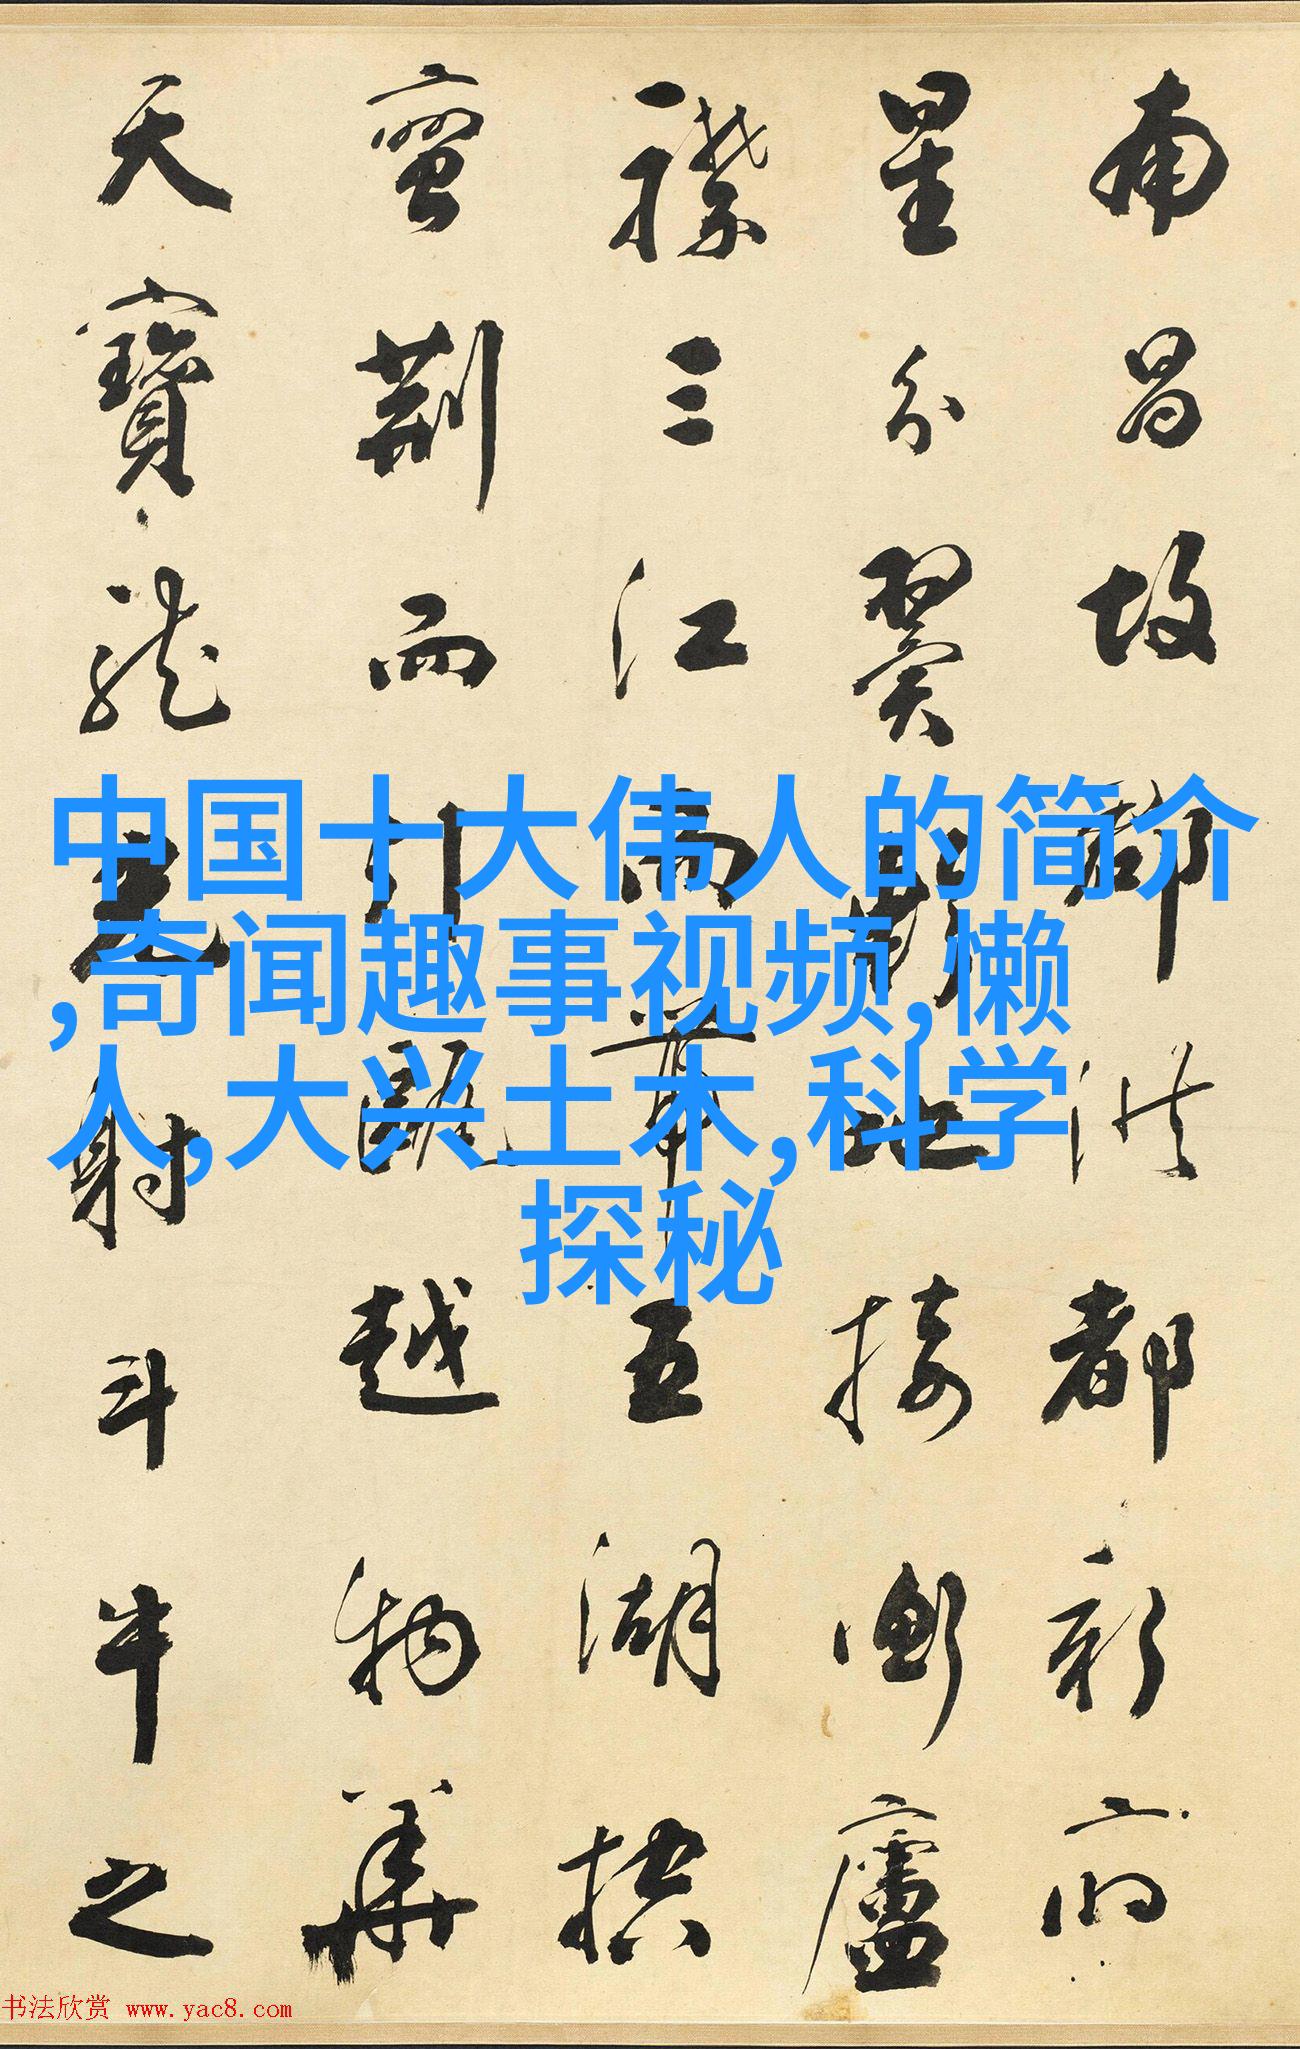 南昌故郡洪都新府
星分翼軫地接衡廬
襟三江而帶五湖控
蠻荊而引甌越物華
天寶龍光射斗牛之
中国十大伟人的简介
,奇闻趣事视频,懒
人,大兴土木,科学
探秘
书法欣赏 www.yac8.com